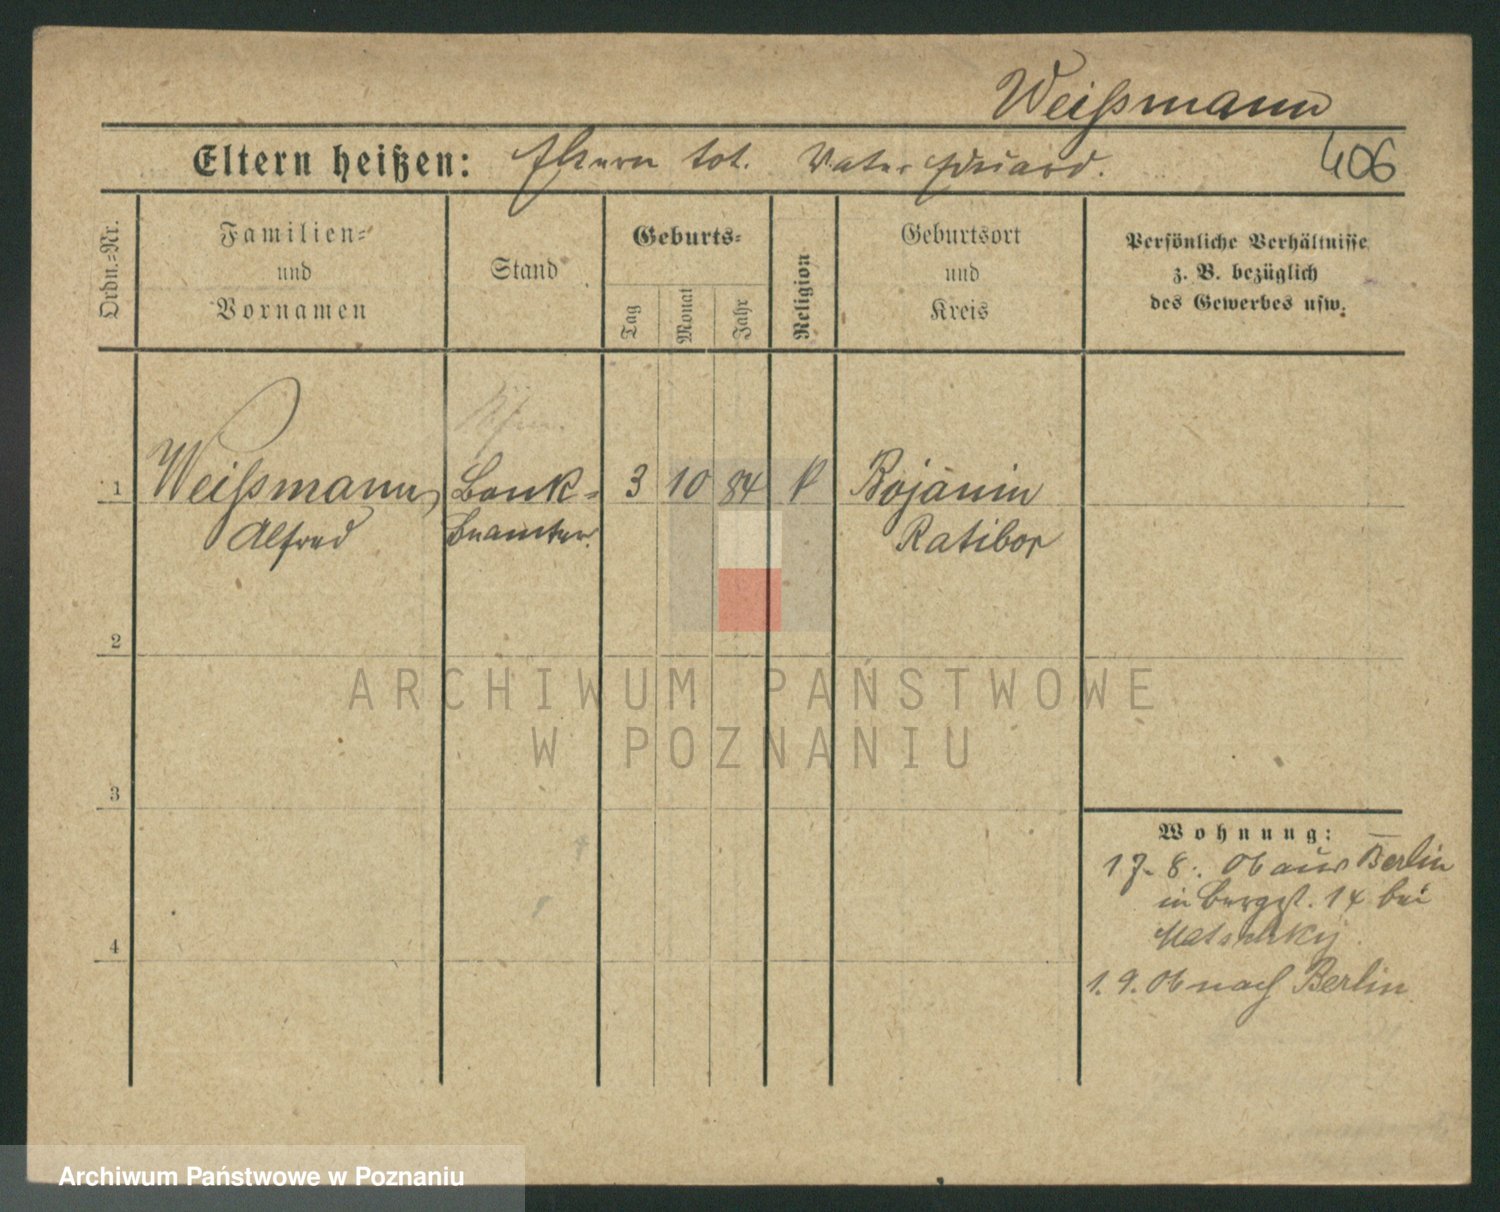 Weißmann
Eltern heißen: Eltern tot. Vater Eduard.
406
Ordn.-Nr.
Familien-
und
Vornamen
Stand
Geburts-
Tag
Monat
Jahr
Religion
Geburtsort
und
Kreis
Persönliche Verhältnisse
z. B. bezüglich
des Gewerbes usw.
1 Weißmann, Bank- 3 10 84 Bojanin
Alfred Beamter. Ratibor
2
ARCHIWUM PAŃSTWOWE
W POZNANIU
3
Wohnung:
17. 8. 06 aus Berlin
in Bergst. 14 bei
4
1. 9. 06 nach Berlin
Archiwum Państwowe w Poznaniu